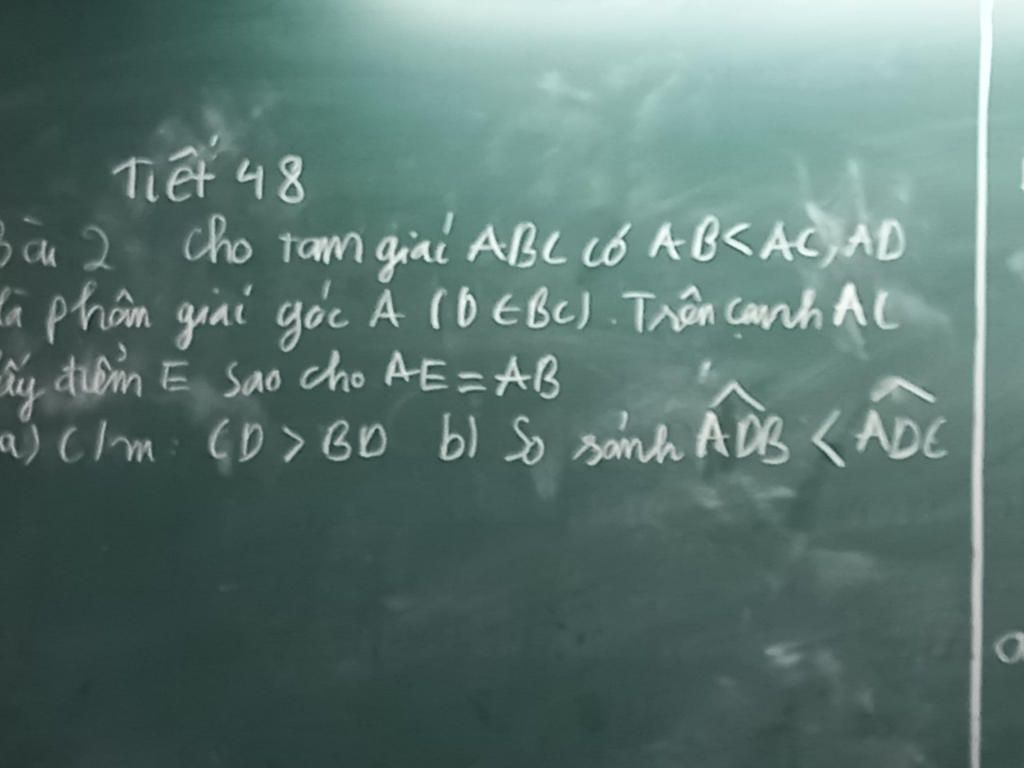 Tiết 48
Bài 2 Cho tam giác ABC có AB < AC, AD
là phân giác góc A (D ∈ BC). Trên cạnh AC
lấy điểm E sao cho AE = AB
a) C/m: CD > BD b) So sánh \widehat{ADB} < \widehat{ADC}